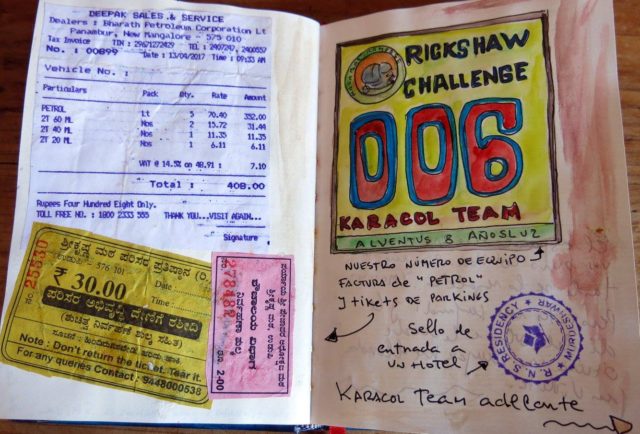 DEEPAK SALES & SERVICE
Dealers : Bharath Petroleum Corporation Lt
Panambur, New Mangalore - 575 010
Tax Invoice TIN : 29671272429 TEL : 2407247, 2400557
No. : 00899 Date : 13/04/2017 Time : 09:33 AM
Vehicle No. :
Particulars Pack Qty. Rate Amount
PETROL Lt 5 70.40 352.00
2T 60 ML Nos 2 15.72 31.44
2T 40 ML Nos 1 11.35 11.35
2T 20 ML Nos 1 6.11 6.11
VAT @ 14.5% on 48.91 : 7.10
Total : 408.00
Rupees Four Hundred Eight Only.
TOLL FREE NO. : 1800 2333 555 THANK YOU...VISIT AGAIN...
Signature
ಶ್ರೀಕೃಷ್ಣ ಮಠ ಪರಿಸರ ಪ್ರತಿಷ್ಠಾನ (ರಿ.
- 576 101
No 25330
₹ 30.00
Date
Time
ಪರಿಸರ ಅಭಿವೃದ್ಧಿ ದೇಣಿಗೆ ರಶೀದಿ
(ಶುಚಿತ್ವ ನಿರ್ವಹಣೆ ಶುಲ್ಕ ಸಹಿತ)
Note : Don't return the ticket. Tear it.
For any queries Contact : 9448000538
278482
ರೂ. 2-00
RICKSHAW
CHALLENGE
006
KARACOL TEAM
ALVENTUS & AÑOSLUZ
NUESTRO NÚMERO DE EQUIPO
FACTURA DE "PETROL"
Y TIKETS DE PARKINGS
Sello de
entrada a
UN HOTEL
R.N.S RESIDENCY
MURDESHWAR
KARACOL TEAM adelante